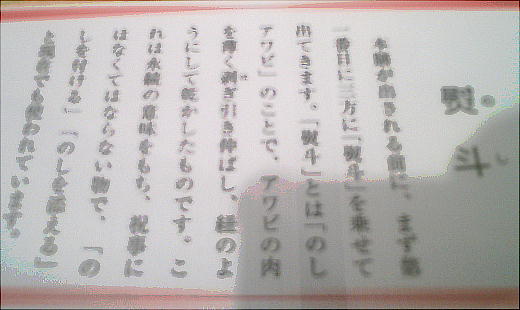 熨斗
のし
本膳が出される前に、まず
一番目に三方に「熨斗」を乗せて
出てきます。「熨斗」とは「のし
アワビ」のことで、アワビの肉
を薄く剥ぎ引き伸ばし、紐のよ
うにして乾かしたものです。こ
れは永続の意味をもち、祝事に
はなくてはならない物で、「の
しを付ける」「のしを添える」
と現在でも使われています。